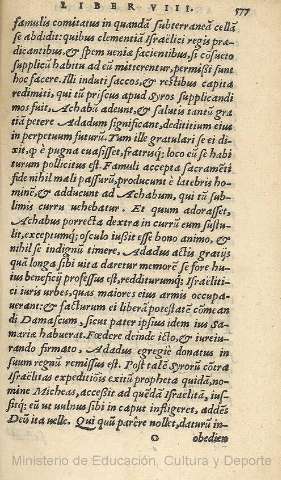 LIBER VIII. 577
famulis comitatus in quandã subterraneã cellã
se abdidit: quibus clementiã Israëlici regis præ-
dicantibus, & spem veniæ facientibus, si cōsueto
supplicũ habitu ad eũ mitterentur, permisit sunt
hoc facere. Illi induti saccos, & restibus capita
redimiti, qui tũ priscus apud Syros supplicandi
mos fuit, Achabũ adeunt, & salutis tantũ gra-
tiã petere Adadum significant, dedititium eius
in perpetuum futurũ. Tum ille gratulari se ei di-
xit, ꝙ è pugna euasisset, fratrisq; loco eũ se habi-
turum pollicitus est. Famuli accepta sacramēti
fide nihil mali passurũ, producunt è latebris ho-
minē, & adducunt ad Achabum, qui tũ sub-
limis curru vehebatur. Et quum adorasset,
Achabus porrecta dextra in currũ eum sustu-
lit, exceptumq; osculo iussit esse bono animo, &
nihil se indignũ timere. Adadus actis gratijs
quã longa sibi vita daretur memorē se fore hu-
ius beneficij professus est, redditurumq; Israëliti-
ci iuris vrbes, quas maiores eius armis occupa-
uerant: & facturum ei liberã potestatē cōmeān
di Damascum, sicut pater ipsius idem ius Sa-
mariæ habuerat. Fœdere deinde icto, & iureiu-
rando firmato, Adadus egregiè donatus in
suum regnũ remissus est. Post talē Syrorũ cōtra
Israëlitas expeditiōis exitũ propheta quidã, no-
mine Micheas, accessit ad quēdã Israëlitã, ius-
sitq; eũ vt vulnus sibi in caput infligeret, addēs
Deũ ita velle. Qui quũ parēre nollet, daturũ in-
O obedien
Ministerio de Educación, Cultura y Deporte